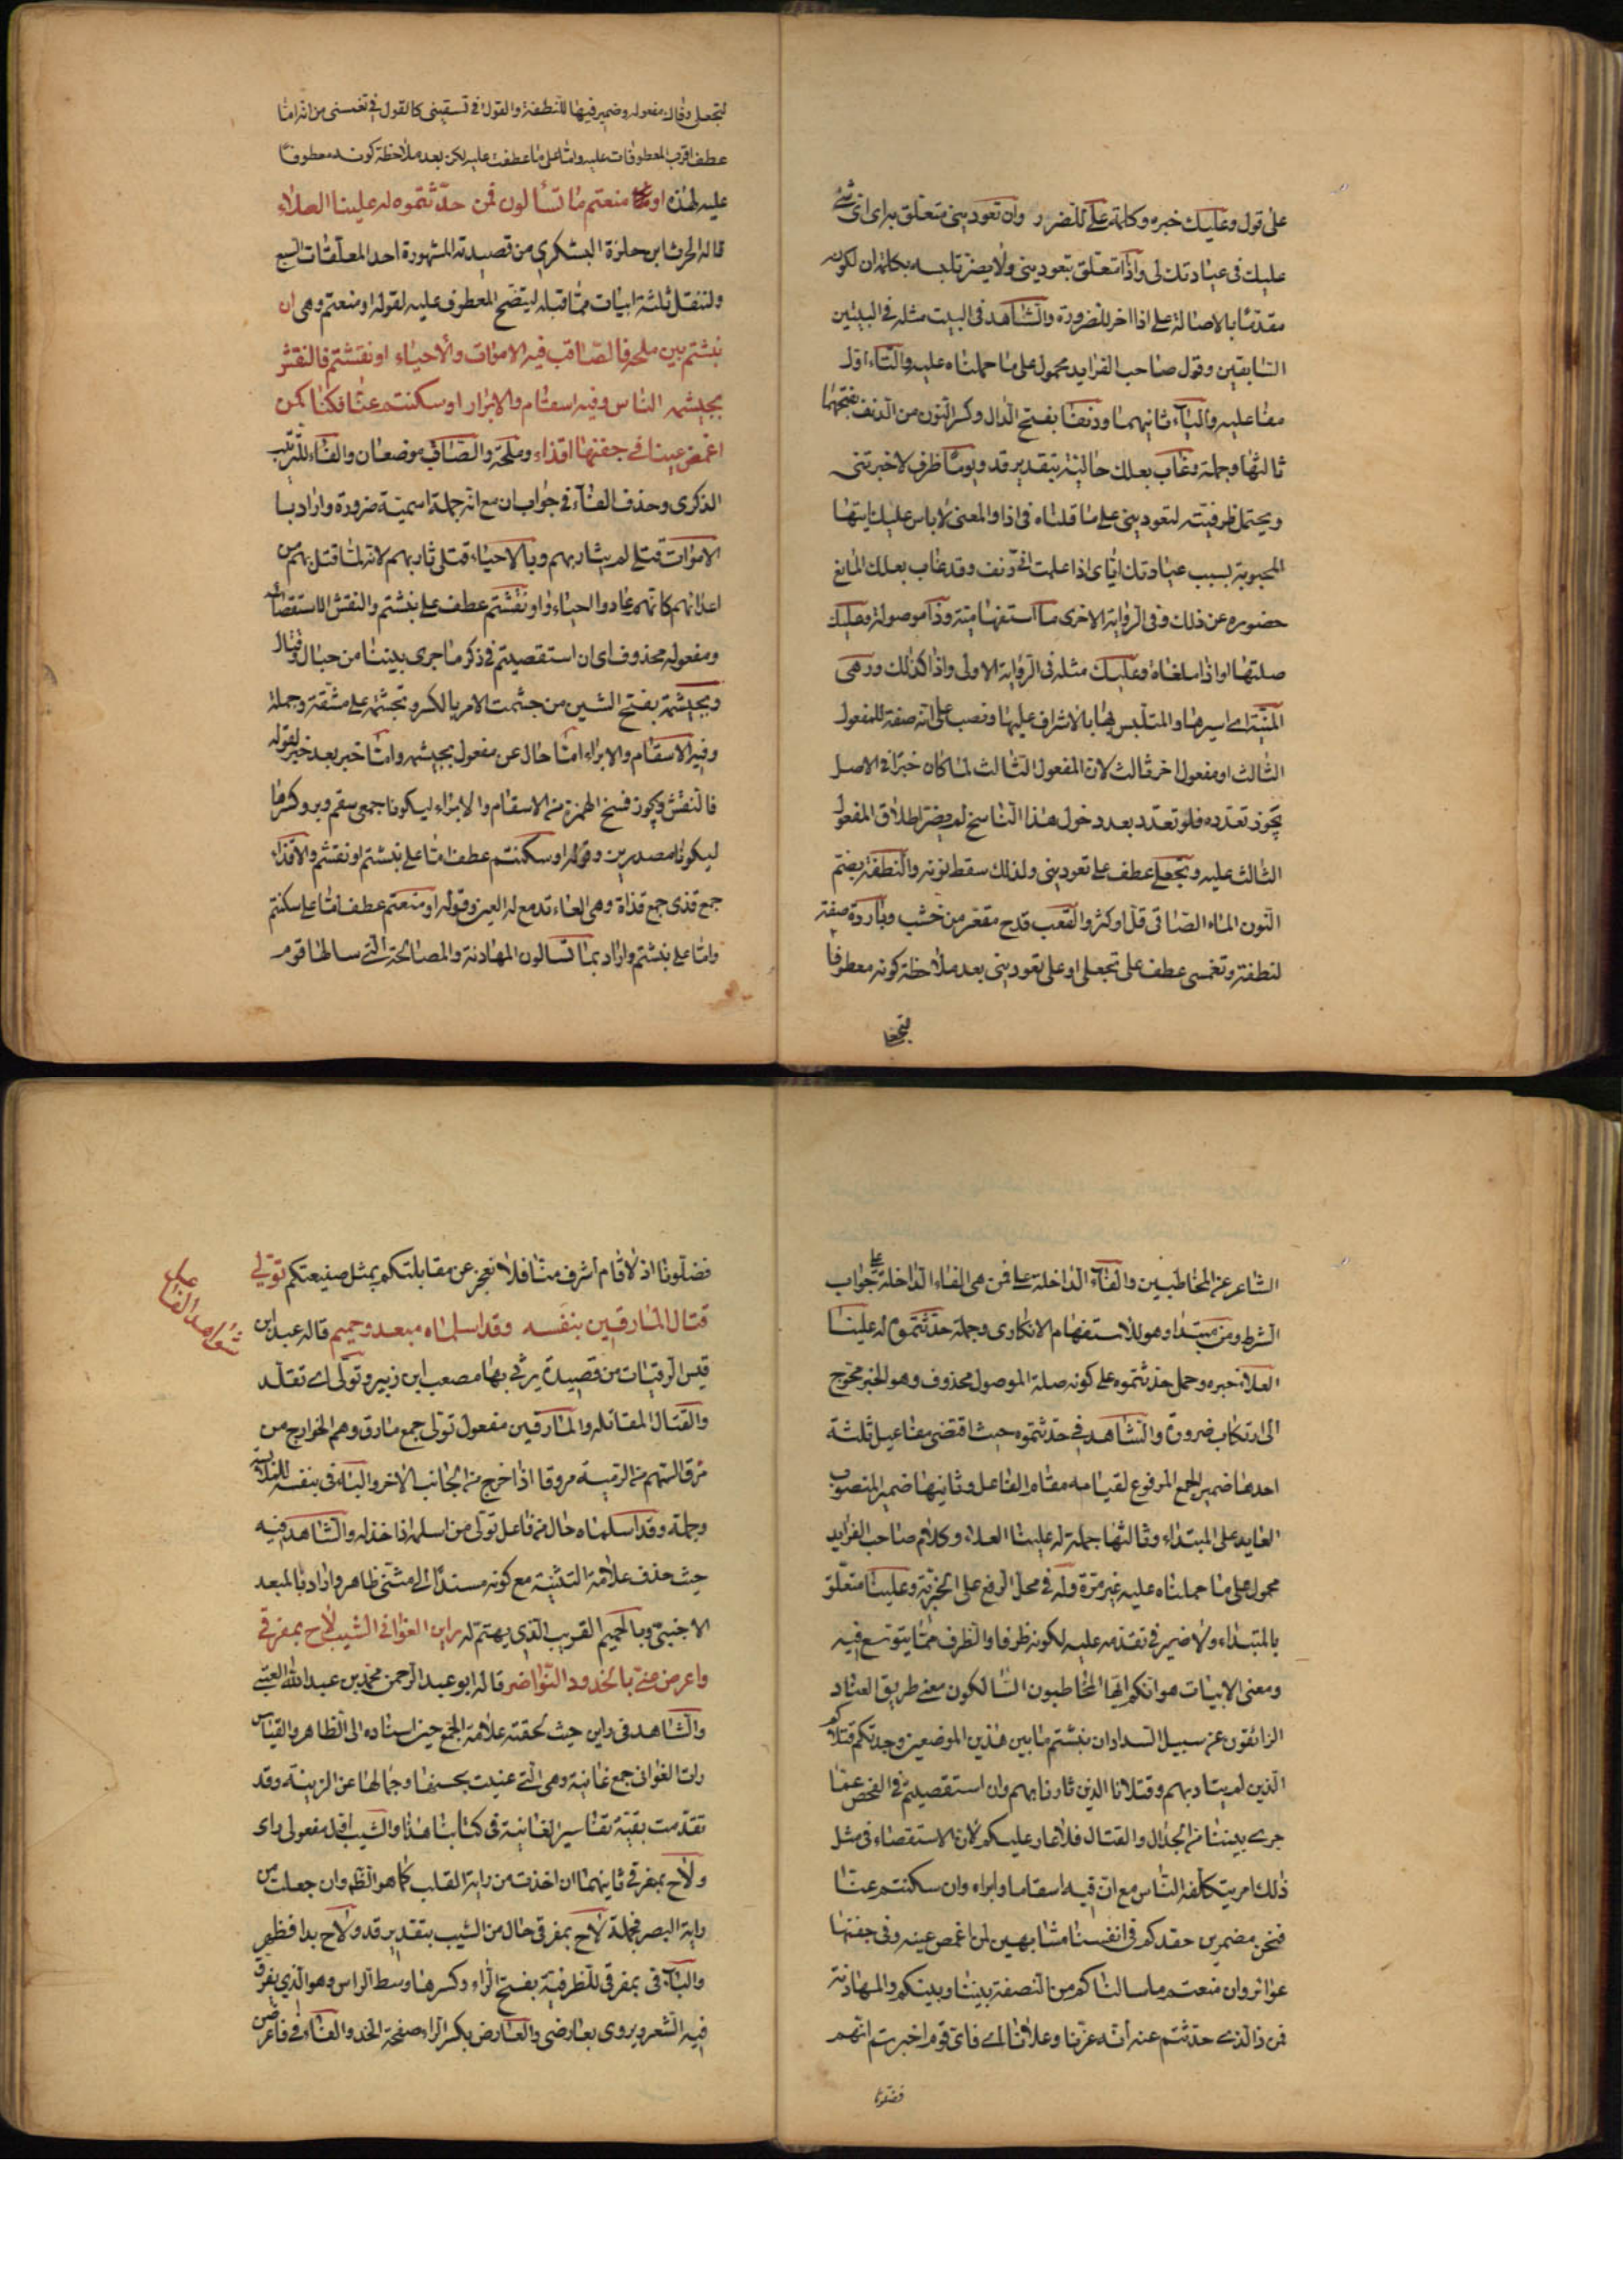 على قول وعليك خبره وكلمة على للضرر وان تعوديني متعلق براى اى شئ
عليك في عيادتك لى واذا متعلق بتعوديني ولا يضر تلبسه بكلمة ان لكونه
مقدما بالاصالة على اذا اخر للضرورة والشاهد في البيت مثله في البيتين
السابقين وقول صاحب الفرايد محمول على ما حملناه عليه والتاء اول
مفاعليه والياء ثانيهما ودنفا بفتح الدال وكسر النون من الدنف بفتحهما
ثالثها وجملة وغاب بعلك حالية بتقدير قد ويوما ظرف لاخبرتنى
ويحتمل ظرفيته لتعوديني على ما قلناه في اذا والمعنى لا باس عليك ايتها
المحبوبة بسبب عيادتك اياى اذا علمت انى دنف وقد غاب بعلك المانع
حضوره عن ذلك وفي الرواية الاخرى ما استفهامية وذا موصولة وعليك
صلتها او اذا ملغاة وعليك مثله في الرواية الاولى واذا كذلك ورهى
المنية اى اسيرها والمتلبس بها بالاشراف عليها ونصب على انه صفة للمفعول
الثالث او مفعول اخر ثالث لان المفعول الثالث لما كان خبرا في الاصل
يجوز تعدده فلو تعدد بعد دخول هذا الناسخ لم يضر اطلاق المفعول
الثالث عليه وتجعلى عطف على تعوديني ولذلك سقط نونه والنطفة بضم
النون الماء الصافى قل او كثر والقعب قدح مقعر من خشب وباردة صفة
لنطفة وتغمسى عطف على تجعلى او على تعوديني بعد ملاحظة كونه معطوفا
لتجعلى
لتجعلى وفاك مفعوله وضمير فيها للنطفة والقول في تسقيني كالقول في تغمسى من انه اما
عطف اقرب المعطوفات عليه واما على ما عطفت عليه لكن بعد ملاحظة كونه معطوفا
عليه لهذه او منعتم ما تسألون فمن حدثتموه له علينا العلاء
قاله الحرث ابن حلزة اليشكري من قصيدته المشهورة احد المعلقات السبع
ولننقل ثلثة ابيات مما قبله ليتضح المعطوف عليه لقوله او منعتم وهى ان
نبشتم بين ملحة فالصاقب فيه الاموات والاحياء او نقشتم فالنقش
يجيشمه الناس وفيه اسقام والابرار او سكنتم عنا فكنا كمن
اغمض عينا في جفنها اقذاء وملحة والصاقب موضعان والفاء للترتيب
الذكرى وحذف الفاء في جواب ان مع انه جملة اسمية ضرورة واراد با
الاموات قتلى لم يثار بهم وبالاحياء قتلى ثار بهم لانه لما قتل بهم من
اعدائهم كانهم عادوا احياء واو نقشتم عطف على نبشتم والنقش الاستقصاء
ومفعوله محذوف اى ان استقصيتم في ذكر ما جرى بيننا من جدال وقتال
ويجيشمه بفتح الشين من جشمت الامر بالكسر وتجشمته على مشقة وجملة
وفيه الاسقام والابراء اما حال عن مفعول يجيشمه واما خبر بعد خبر لقوله
فالنقش ويجوز فتح الهمزة من الاسقام والابراء ليكونا جمعى سقم وبرء وكسرها
ليكونا مصدرين وقوله او سكنتم عطف اما على نبشتم او نقشتم والاقذاء
جمع قذى جمع قذاة وهى الماء تدمع له العين وقوله او منعتم عطف اما على سكنتم
واما على نبشتم واراد بما تسالون المهادنة والمصالحة التى سالها قوم
الشاعر عن المخاطبين والفاء الداخلة على فمن هى الفاء الداخلة على جواب
الشرط ومن مبتدا وهو للاستفهام الانكارى وجملة حدثتموه له علينا
العلاء خبره وحمل حدثتموه على كونه صلة الموصول محذوف وهو الخبر مخرج
الى ارتكاب ضرورة والشاهد في حدثتموه حيث اقتضى مفاعيل ثلثة
احدها ضمير الجمع المرفوع لقيامه مقام الفاعل وثانيها ضمير المنصوب
العايد على المبتداء وثالثها جملة له علينا العلاء وكلام صاحب الفرايد
محمول على ما حملناه عليه غير مرة وله في محل الرفع على الخبرية وعلينا متعلق
بالمبتداء ولا ضير في تقدمه عليه لكونه ظرفا والظرف مما يتوسع فيه
ومعنى الابيات هو انكم ايها المخاطبون السالكون معنى طريق العناد
الزائغون عن سبيل السداد ان نبشتم ما بين هذين الموضعين وجدتم قتلاكم
الذين لم يثار بهم وقتلانا الذين ثارنا بهم وان استقصيتم في الفحص عما
جرى بيننا من الجدال والقتال فلا عار عليكم لان الاستقصاء في مثل
ذلك امر يتكلفه الناس مع ان فيه اسقاما وابراء وان سكنتم عنا
فنحن مضمرين حقدكم في انفسنا مشابهين لمن اغمض عينه وفي جفنها
عوائر وان منعتم ما سالناكم من النصفة بيننا وبينكم والمهادنة
فمن ذا الذى حدثتم عنه انه عزنا وعلانا اى فاى قوم اخبرتم انهم
فضلونا
فضلونا اذ لا قام اشرف منا فلا نعجز عن مقابلتكم بمثل صنيعتكم تولى
قتال المارقين بنفسه وقد اسلماه مبعد وحميم قاله عبد ابن
شواهد الفاعل
قيس الرقيات من قصيدة يرثى بها مصعب ابن زبير وتولى اى تقلد
والقتال المقاتلة والمارقين مفعول تولى جمع مارق وهم الخوارج من
مرق السهم من الرمية مروقا اذا خرج من الجانب الاخر والباء في بنفسه للملابسة
وجملة وقد اسلماه حال من فاعل تولى من اسلمه اذا خذله والشاهد فيه
حيث حذف علامة التثنية مع كونه مسندا الى مثنى ظاهر واراد بالمبعد
الاجنبى وبالحميم القريب الذى يهتم له راين الغوانى الشيب لاح بمفرقى
واعرضن عنى بالخدود النواضر قاله ابو عبد الرحمن محمد بن عبد الله العتبى
والشاهد في راين حيث لحقته علامة الجمع حين اسناده الى الظاهر والقياس
رات الغوانى جمع غانية وهى التى غنيت بحسنها وجمالها عن الزينة وقد
تقدمت بقية تفاسير الغانية في كتابنا هذا والشيب اول مفعولى راى
ولاح بمفرقى ثانيهما ان اخذت من راية القلب كما هو الظ وان جعلت من
راية البصر فجملة لاح بمفرقى حال من الشيب بتقدير قد ولاح بدا فظهر
والباء في بمفرقى للظرفية بفتح الراء وكسرها وسط الراس وهو الذى يفرق
فيه الشعر ويروى بعارضى والعارض بكسر الراء صفحة الخد والفاء في فاعرضن